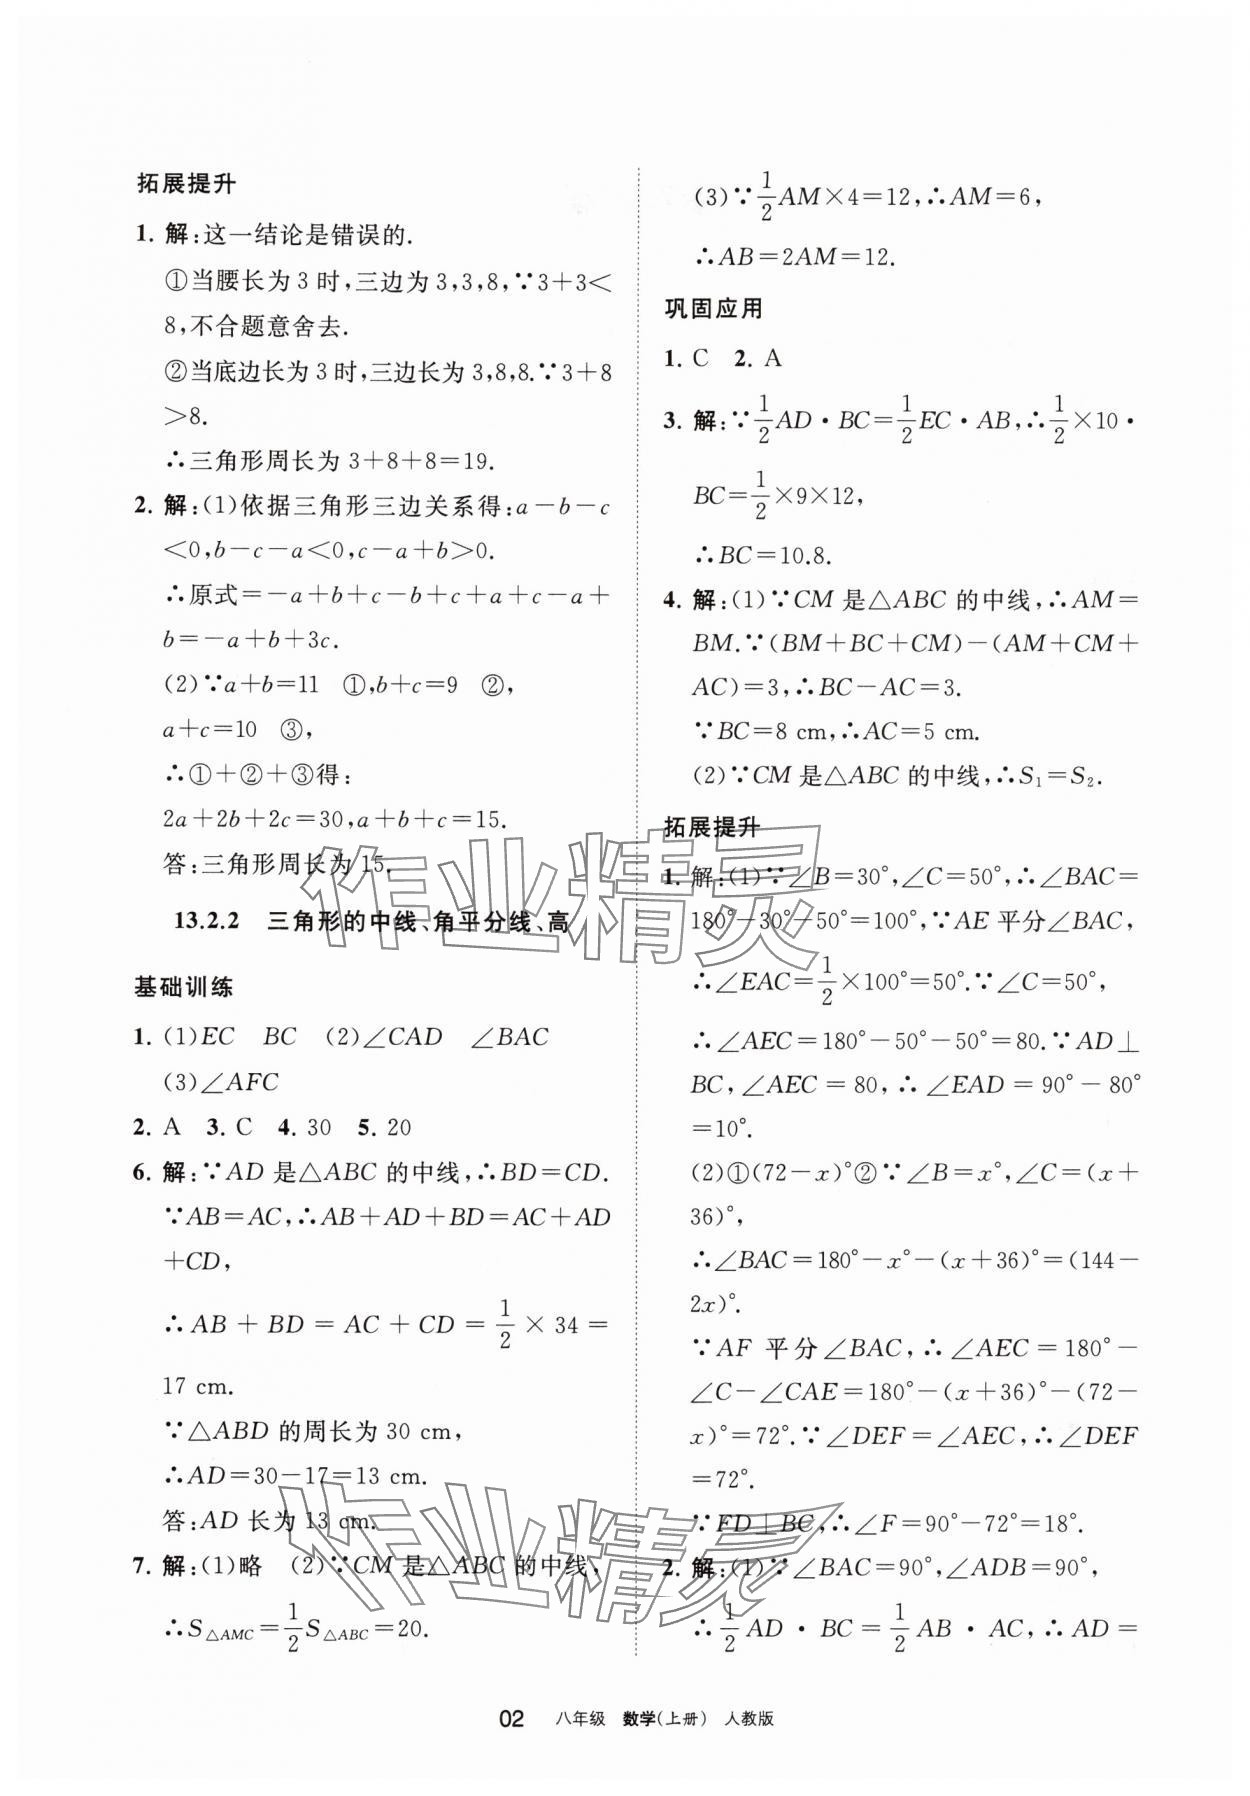 拓展提升
1. 解:这一结论是错误的.
①当腰长为 3 时,三边为 3,3,8,∵3+3<
8,不合题意舍去.
②当底边长为 3 时,三边长为 3,8,8.∵3+8
>8.
∴三角形周长为 3+8+8=19.
2. 解:(1)依据三角形三边关系得:a-b-c
<0,b-c-a<0,c-a+b>0.
∴原式=-a+b+c-b+c+a+c-a+
b=-a+b+3c.
(2)∵a+b=11 ①,b+c=9 ②,
a+c=10 ③,
∴①+②+③得:
2a+2b+2c=30,a+b+c=15.
答:三角形周长为 15.
13.2.2 三角形的中线、角平分线、高
基础训练
1. (1)EC BC (2)∠CAD ∠BAC
(3)∠AFC
2. A 3. C 4. 30 5. 20
6. 解:∵AD 是△ABC 的中线,∴BD=CD.
∵AB=AC,∴AB+AD+BD=AC+AD
+CD,
∴AB+BD=AC+CD=1/2×34=
17 cm.
∵△ABD 的周长为 30 cm,
∴AD=30-17=13 cm.
答:AD 长为 13 cm.
7. 解:(1)略 (2)∵CM 是△ABC 的中线,
∴S△AMC=1/2S△ABC=20.
(3)∵1/2AM×4=12,∴AM=6,
∴AB=2AM=12.
巩固应用
1. C 2. A
3. 解:∵1/2AD·BC=1/2EC·AB,∴1/2×10·
BC=1/2×9×12,
∴BC=10.8.
4. 解:(1)∵CM 是△ABC 的中线,∴AM=
BM.∵(BM+BC+CM)-(AM+CM+
AC)=3,∴BC-AC=3.
∵BC=8 cm,∴AC=5 cm.
(2)∵CM 是△ABC 的中线,∴S₁=S₂.
拓展提升
1. 解:(1)∵∠B=30°,∠C=50°,∴∠BAC=
180°-30°-50°=100°,∵AE 平分∠BAC,
∴∠EAC=1/2×100°=50°.∵∠C=50°,
∴∠AEC=180°-50°-50°=80.∵AD⊥
BC,∠AEC=80,∴∠EAD=90°-80°
=10°.
(2)①(72-x)°②∵∠B=x°,∠C=(x+
36)°,
∴∠BAC=180°-x°-(x+36)°=(144-
2x)°.
∵AF 平分∠BAC,∴∠AEC=180°-
∠C-∠CAE=180°-(x+36)°-(72-
x)°=72°.∵∠DEF=∠AEC,∴∠DEF
=72°.
∵FD⊥BC,∴∠F=90°-72°=18°.
2. 解:(1)∵∠BAC=90°,∠ADB=90°,
∴1/2AD·BC=1/2AB·AC,∴AD=
02 八年级 数学(上册) 人教版
作业精灵
作业精灵